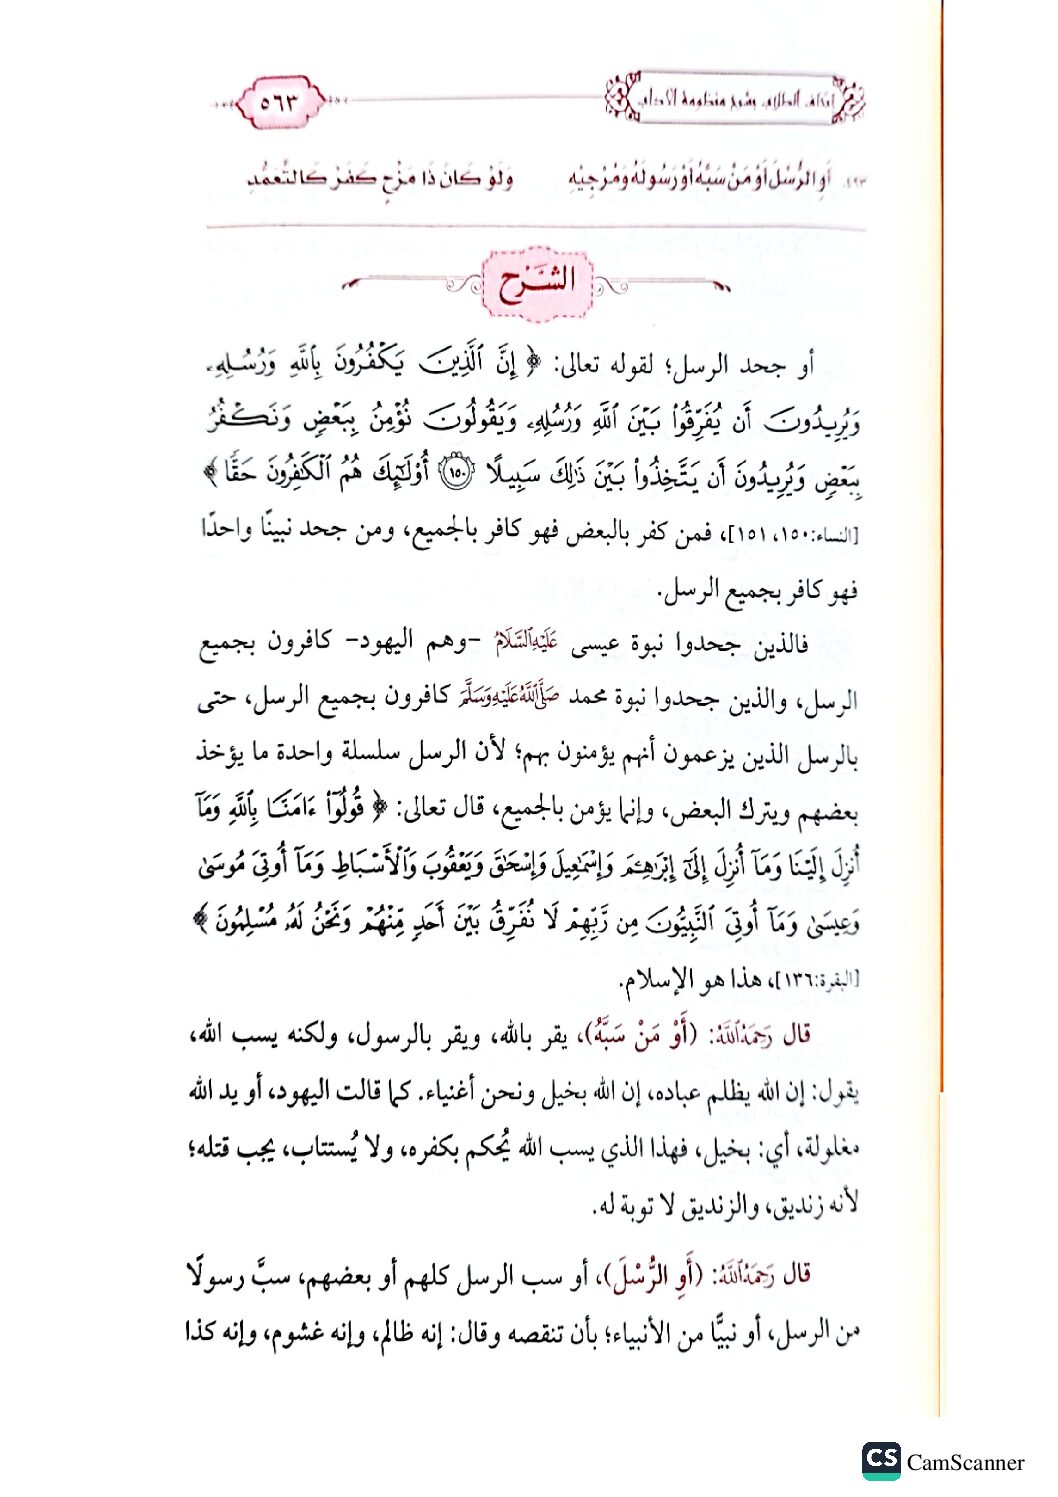 إتحاف الطلاب بشرح منظومة الآداب
٥٦٣
أَوِ الرُّسْلَ أَوْ مَنْ سَبَّهُ أَوْ رَسُولَهُ وَمُرْجِيْهِ وَلَوْ كَانَ ذَا مَزْحٍ كَفَرْ كَالتَّعَمُّدِ
الشَّرْح
أو جحد الرسل؛ لقوله تعالى: ﴿إِنَّ ٱلَّذِينَ يَكۡفُرُونَ بِٱللَّهِ وَرُسُلِهِۦ
وَيُرِيدُونَ أَن يُفَرِّقُواْ بَيۡنَ ٱللَّهِ وَرُسُلِهِۦ وَيَقُولُونَ نُؤۡمِنُ بِبَعۡضٖ وَنَكۡفُرُ
بِبَعۡضٖ وَيُرِيدُونَ أَن يَتَّخِذُواْ بَيۡنَ ذَٰلِكَ سَبِيلًا ١٥٠ أُوْلَٰٓئِكَ هُمُ ٱلۡكَٰفِرُونَ حَقّٗا﴾
[النساء: ١٥٠، ١٥١]، فمن كفر بالبعض فهو كافر بالجميع، ومن جحد نبينًا واحدًا
فهو كافر بجميع الرسل.
فالذين جحدوا نبوة عيسى عَلَيْهِ السَّلَامُ -وهم اليهود- كافرون بجميع
الرسل، والذين جحدوا نبوة محمد صَلَّى اللَّهُ عَلَيْهِ وَسَلَّمَ كافرون بجميع الرسل، حتى
بالرسل الذين يزعمون أنهم يؤمنون بهم؛ لأن الرسل سلسلة واحدة ما يؤخذ
بعضهم ويترك البعض، وإنما يؤمن بالجميع، قال تعالى: ﴿قُولُوٓاْ ءَامَنَّا بِٱللَّهِ وَمَآ
أُنزِلَ إِلَيۡنَا وَمَآ أُنزِلَ إِلَىٰٓ إِبۡرَٰهِـۧمَ وَإِسۡمَٰعِيلَ وَإِسۡحَٰقَ وَيَعۡقُوبَ وَٱلۡأَسۡبَاطِ وَمَآ أُوتِيَ مُوسَىٰ
وَعِيسَىٰ وَمَآ أُوتِيَ ٱلنَّبِيُّونَ مِن رَّبِّهِمۡ لَا نُفَرِّقُ بَيۡنَ أَحَدٖ مِّنۡهُمۡ وَنَحۡنُ لَهُۥ مُسۡلِمُونَ﴾
[البقرة: ١٣٦]، هذا هو الإسلام.
قال رَحِمَهُ اللَّهُ: (أَوْ مَنْ سَبَّهُ)، يقر بالله، ويقر بالرسول، ولكنه يسب الله،
يقول: إن الله يظلم عباده، إن الله بخيل ونحن أغنياء. كما قالت اليهود، أو يد الله
مغلولة، أي: بخيل، فهذا الذي يسب الله يُحكم بكفره، ولا يُستتاب، يجب قتله؛
لأنه زنديق، والزنديق لا توبة له.
قال رَحِمَهُ اللَّهُ: (أَوِ الرُّسْلَ)، أو سب الرسل كلهم أو بعضهم، سبَّ رسولًا
من الرسل، أو نبيًّا من الأنبياء؛ بأن تنقصه وقال: إنه ظالم، وإنه غشوم، وإنه كذا
CS CamScanner